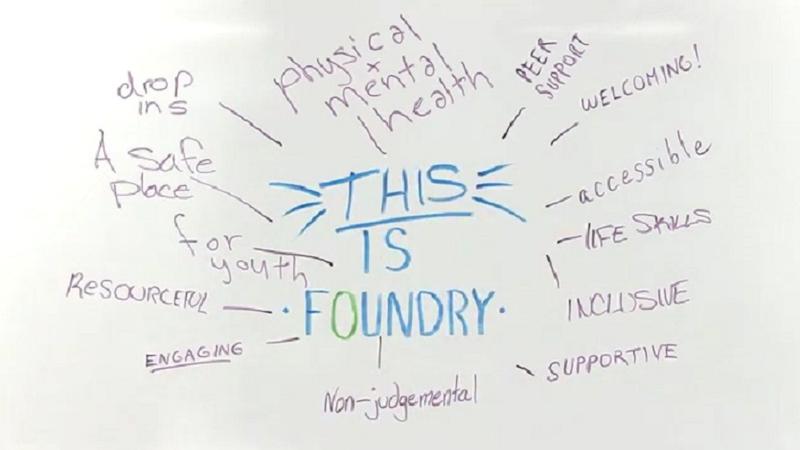 drop
ins
physical
+
mental
health
PEER
SUPPORT
WELCOMING!
A safe
place
accessible
for
youth
LIFE SKILLS
THIS
IS
FOUNDRY
RESOURCEFUL
INCLUSIVE
ENGAGING
SUPPORTIVE
Non-judgemental